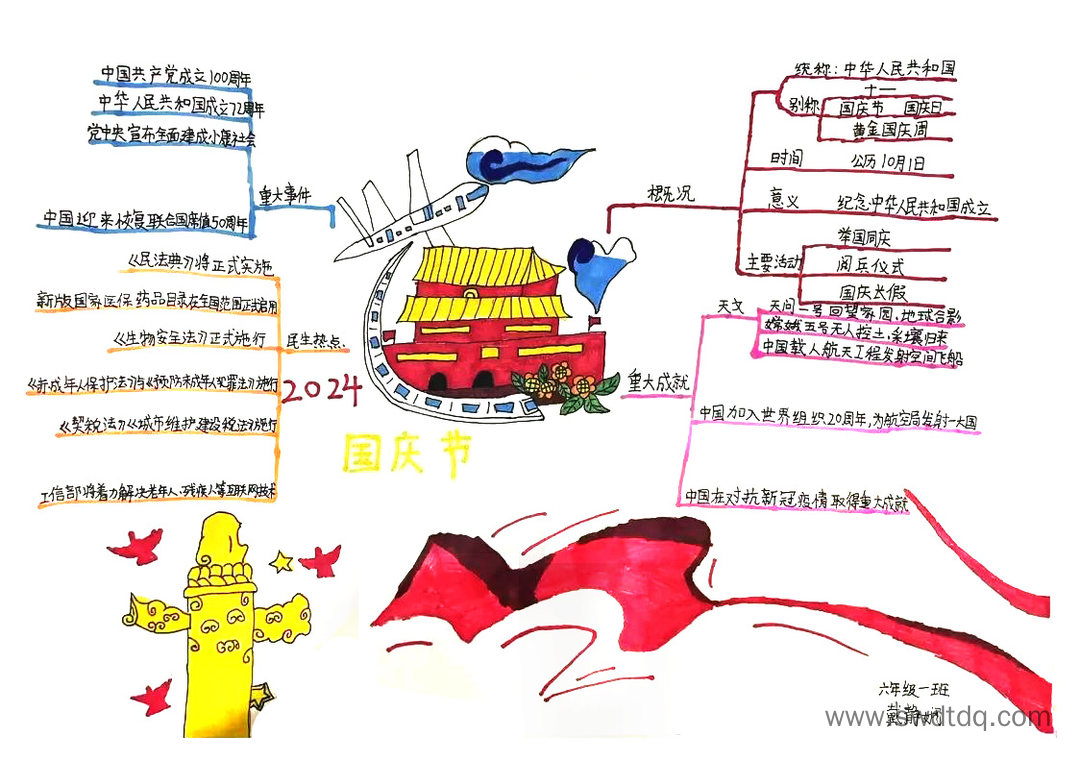 中国共产党成立100周年
中华人民共和国成立72周年
党中央宣布全面建成小康社会
重大事件
中国迎来恢复联合国席值50周年
《民法典》将正式实施
新版国家医保药品目录在全国范围正式启用
《生物安全法》正式施行
民生热点.
《未成年人保护法》与《预防未成年人犯罪法》施行
《契税法》《城市维护建设税法》施行
工信部将着力解决老年人、残疾人等互联网技术
2024
国庆节
概况
统称:中华人民共和国
别称
十一
国庆节 国庆日
黄金国庆周
时间 公历10月1日
意义 纪念中华人民共和国成立
主要活动
举国同庆
阅兵仪式
国庆长假
重大成就
天戈 天问一号回望家园,地球合影
嫦娥五号无人挖土,采壤归来
中国载人航天工程发射空间飞船
中国加入世界组织20周年,为航空局发射一大国
中国在对抗新冠疫情取得重大成就
六年级一班
戴静娴
www.swdtdq.com